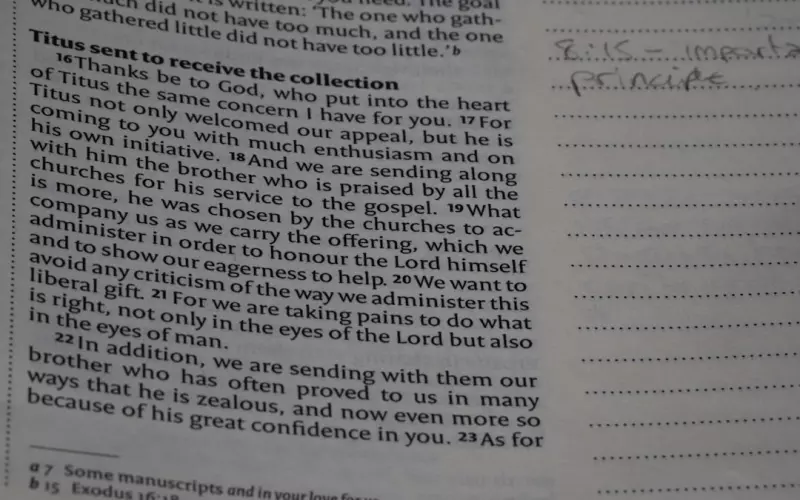 is written: 'The one who gath-
did not have too much, and the one
who gathered little did not have too little.'b
Titus sent to receive the collection
16Thanks be to God, who put into the heart
of Titus the same concern I have for you. 17For
Titus not only welcomed our appeal, but he is
coming to you with much enthusiasm and on
his own initiative. 18And we are sending along
with him the brother who is praised by all the
churches for his service to the gospel. 19What
is more, he was chosen by the churches to ac-
company us as we carry the offering, which we
administer in order to honour the Lord himself
and to show our eagerness to help. 20We want to
avoid any criticism of the way we administer this
liberal gift. 21For we are taking pains to do what
is right, not only in the eyes of the Lord but also
in the eyes of man.
22In addition, we are sending with them our
brother who has often proved to us in many
ways that he is zealous, and now even more so
because of his great confidence in you. 23As for
a7 Some manuscripts and in your love for
b15 Exodus 16:18
8:15 - importa
principle